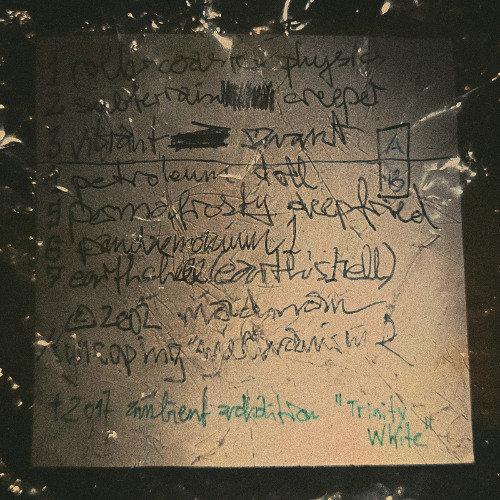 1 rollercoaster physics
2 subterrain creeper
3 vibrant savant
A
petroleum doll
B
5 permafrosty deepfried
6 pandaemonium 1
7 earthchell (earth is hell)
2002 madman
"mechanism 2
+2017 ambient addition "Trinity
White"